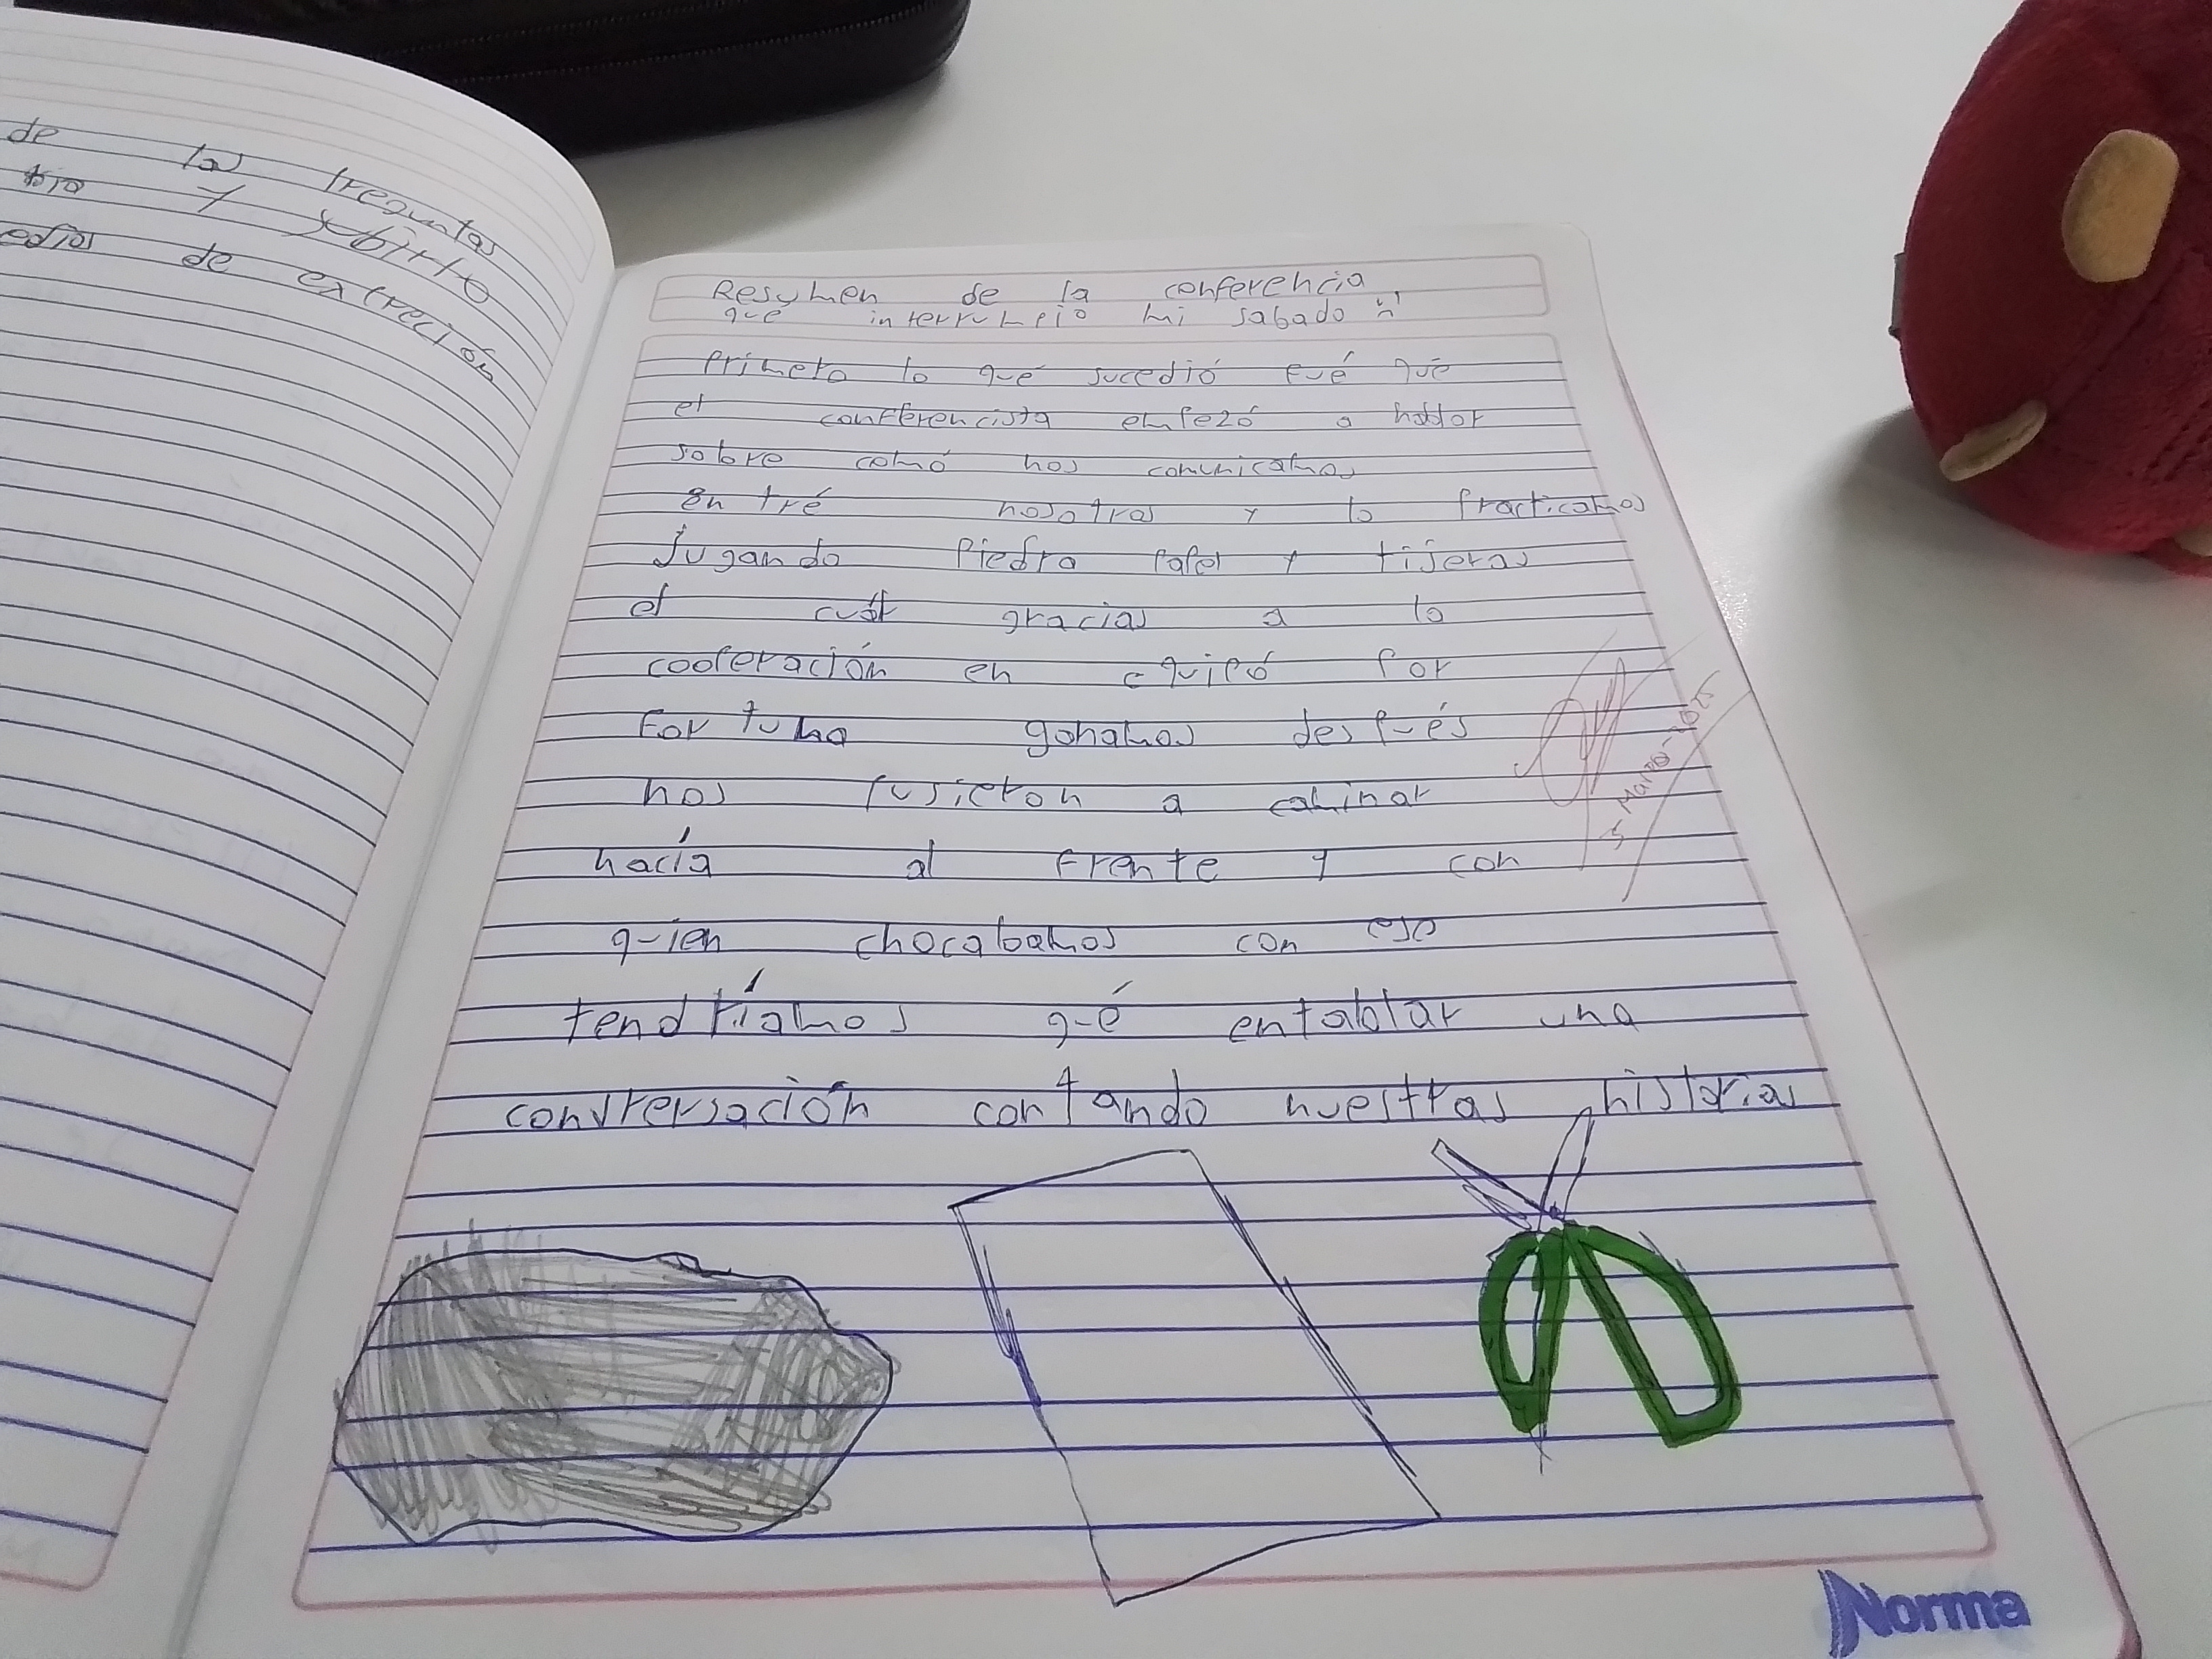 de las preguntas
tio y subirlo
edios de expreción
Resumen de la conferencia
qué interrumpio mi sabado :(
Primero lo qué sucedió fué qué
el conferencista empezó a hablar
sobre comó nos comunicamos
entré nosotros y lo practicamos
jugando Piedra Papel y tijeras
el cuál gracias a la
cooperación en equipó por
fortuna ganamos después
nos pusieron a caminar
hacía al frente y con
quien chocabamos con ese
tendríamos qué entablar una
convrersación contando nuestras historias
Norma